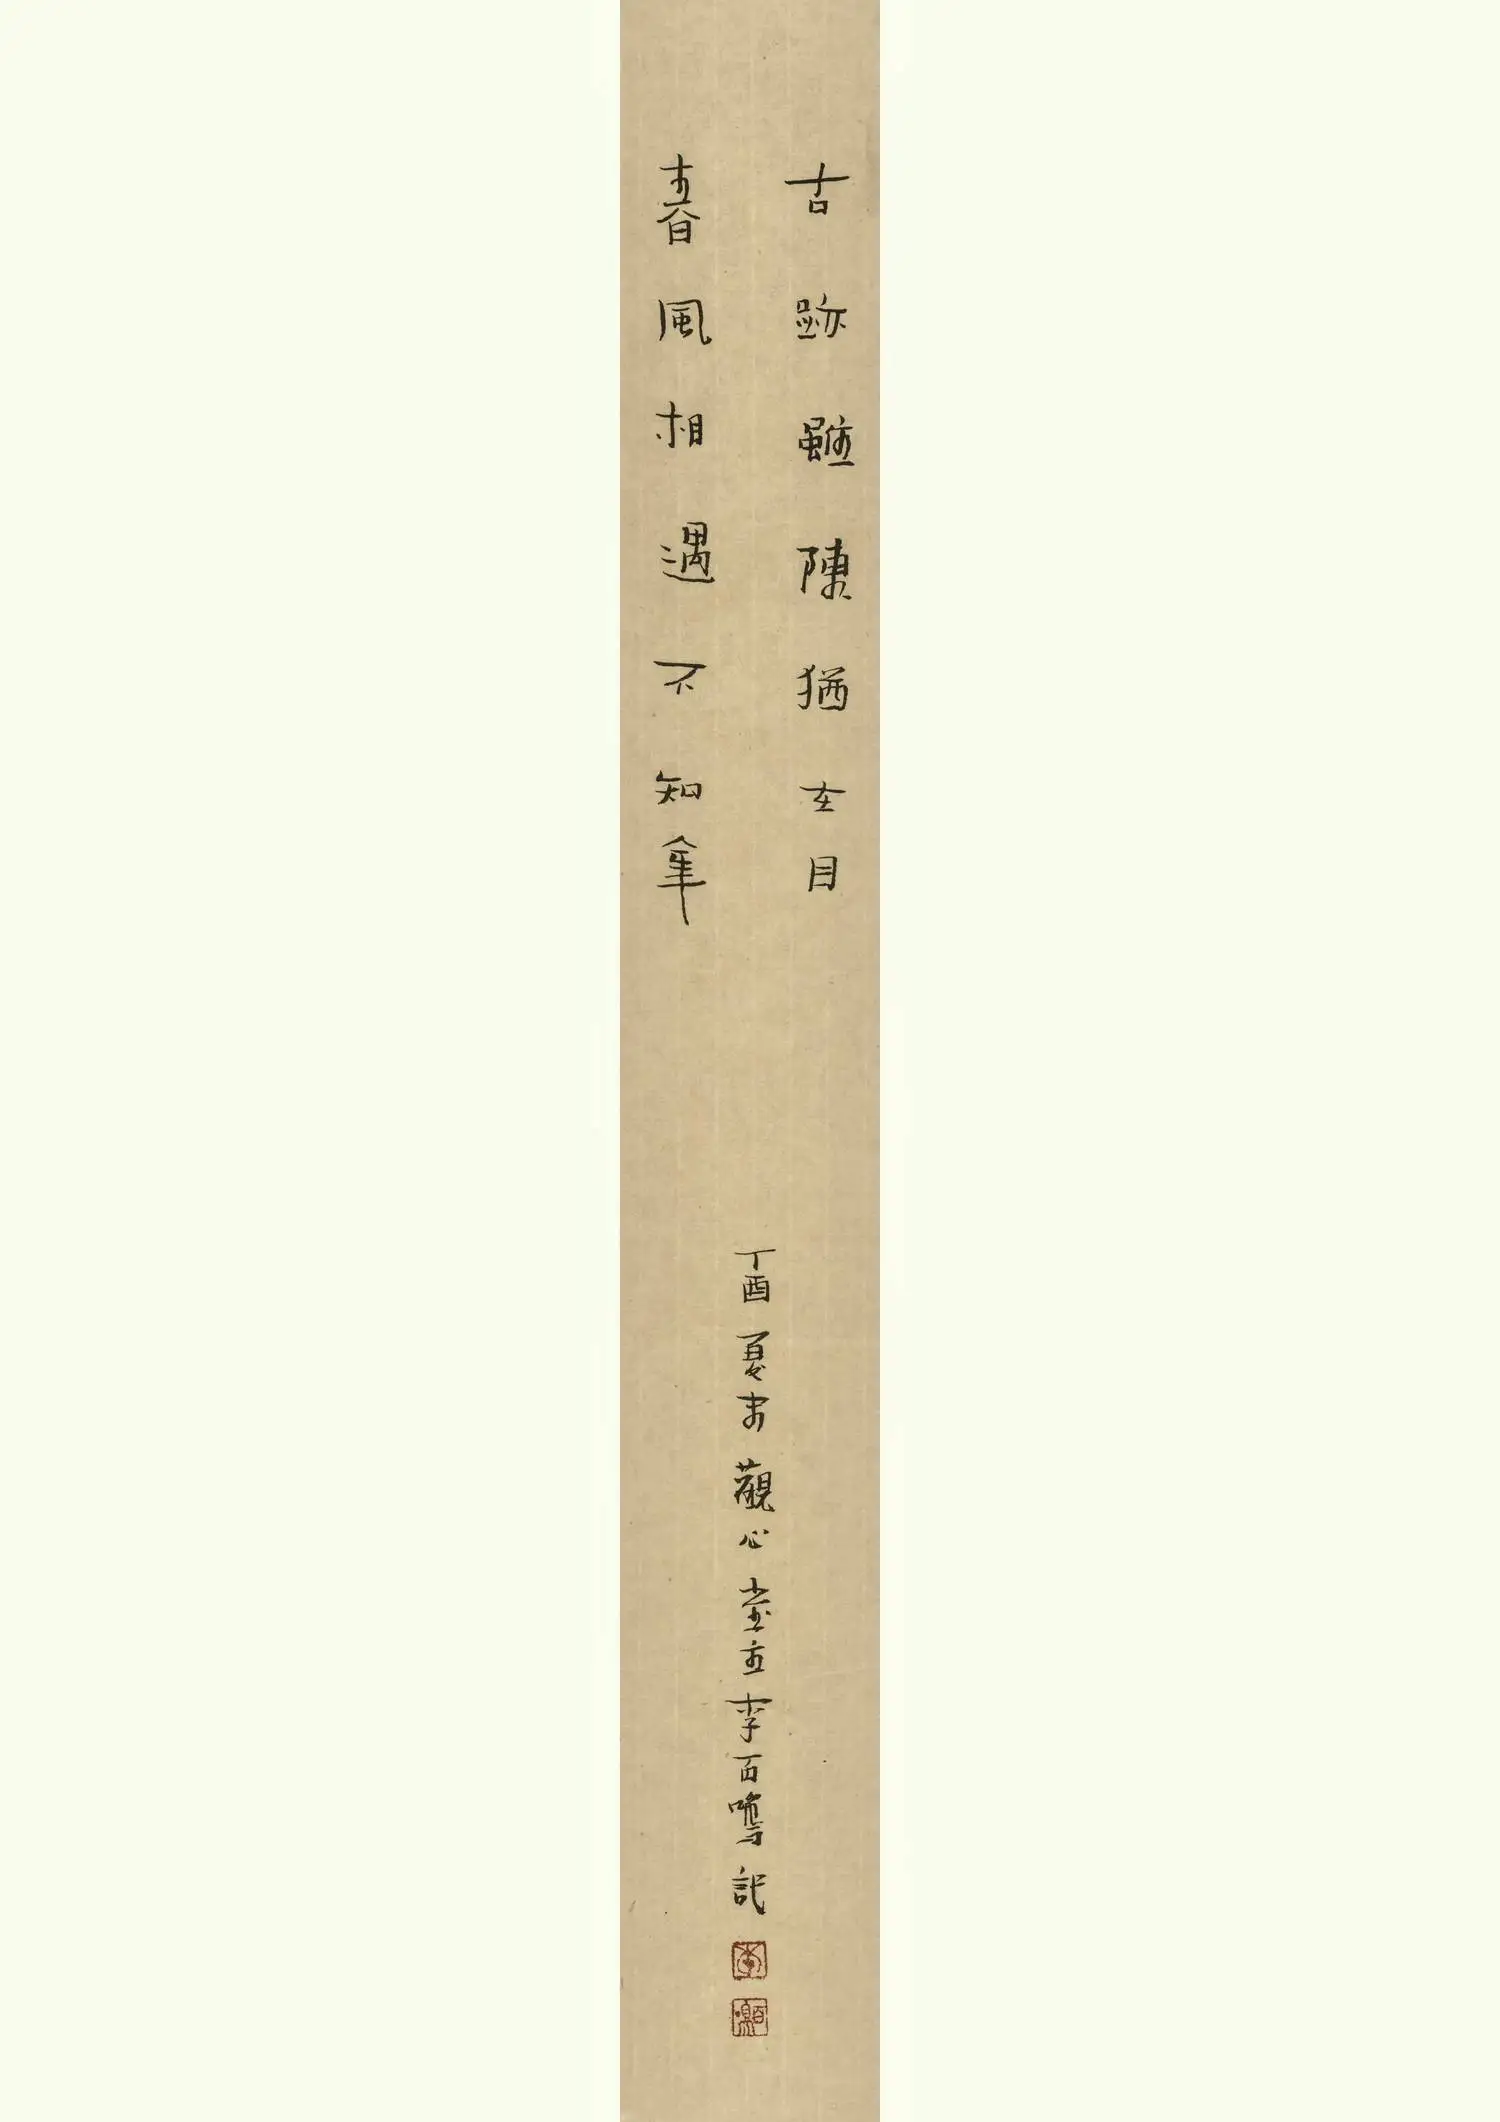 古跡雖陳猶在目
春風相遇不知年
丁酉夏末觀心堂主李百鳴記
李
百鳴